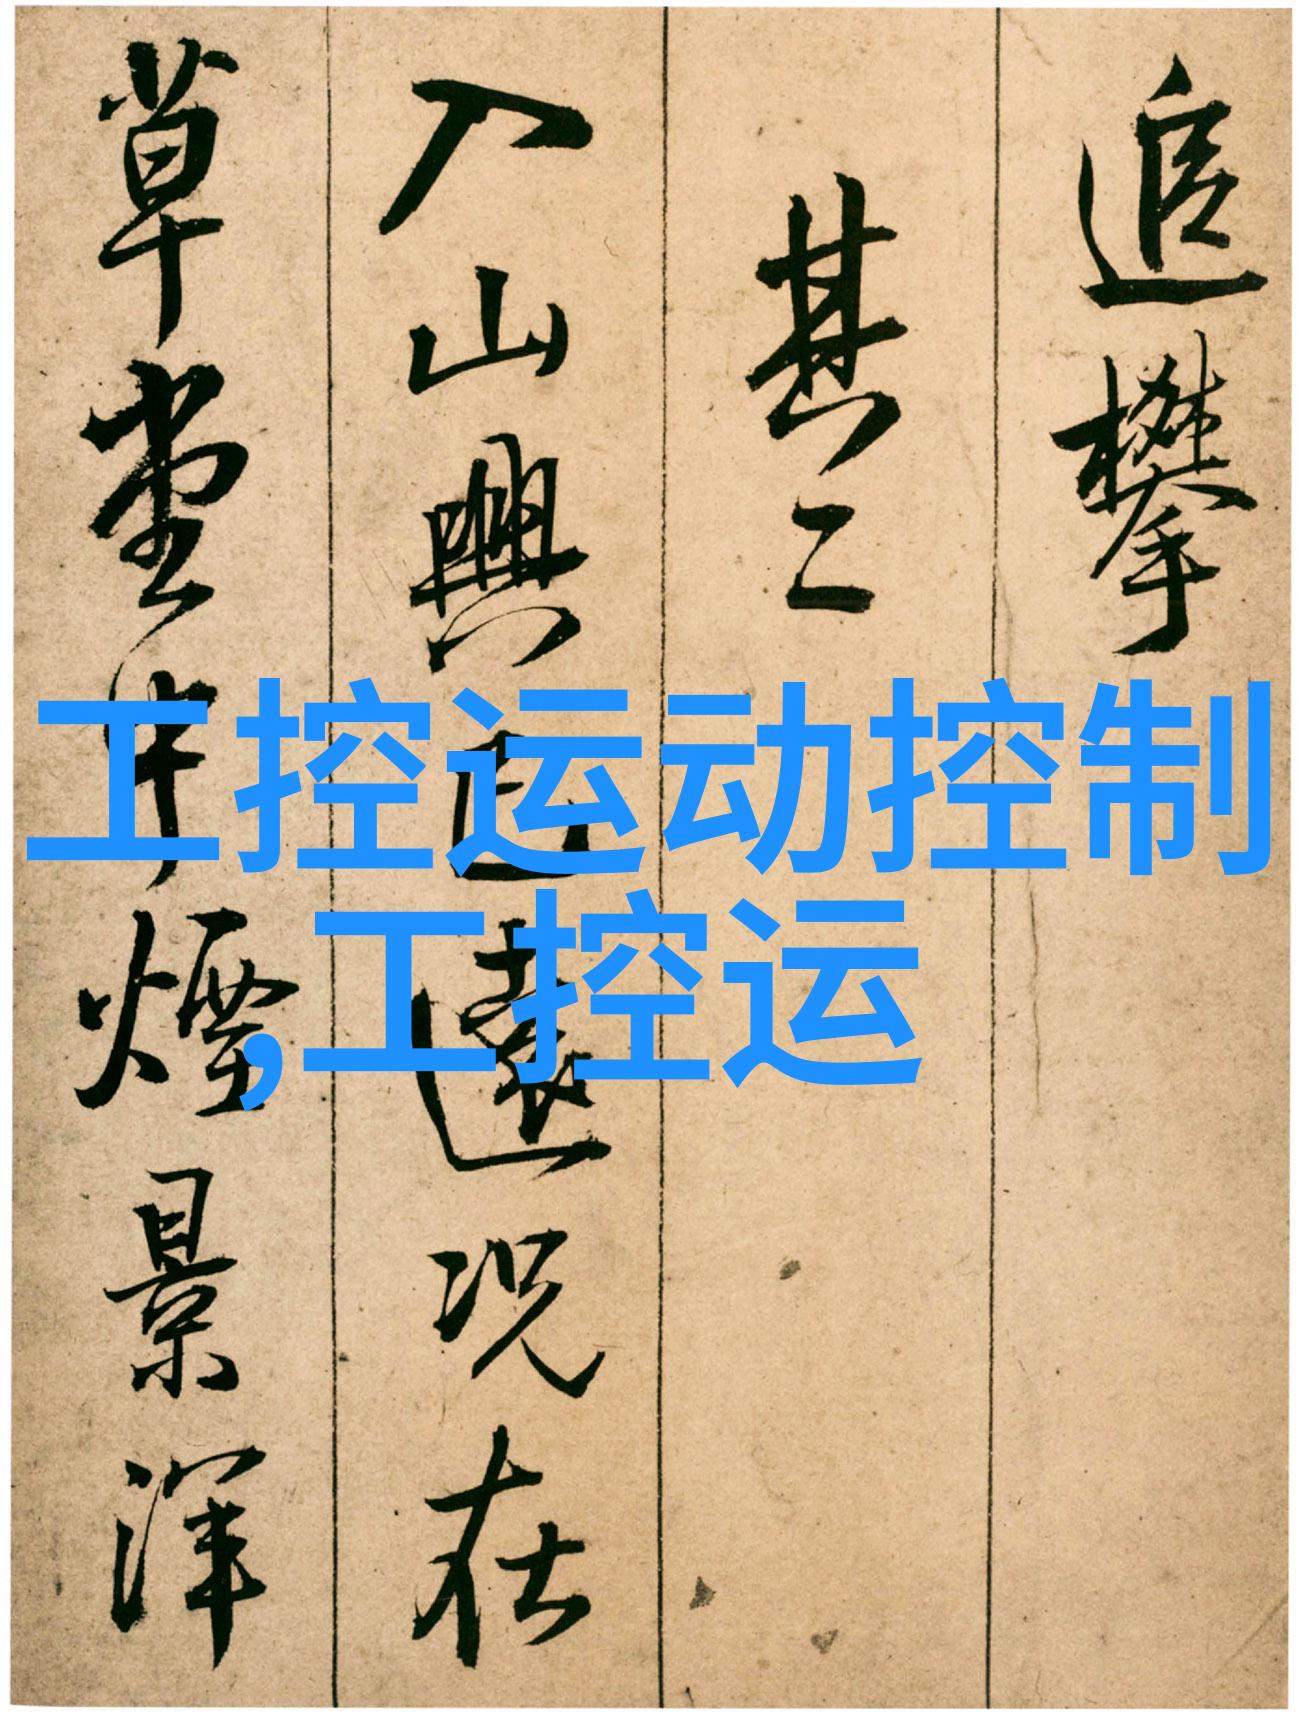 追攀
其二
入山興已遠況在
草堂煙景渾
工控运动控制
,工控运